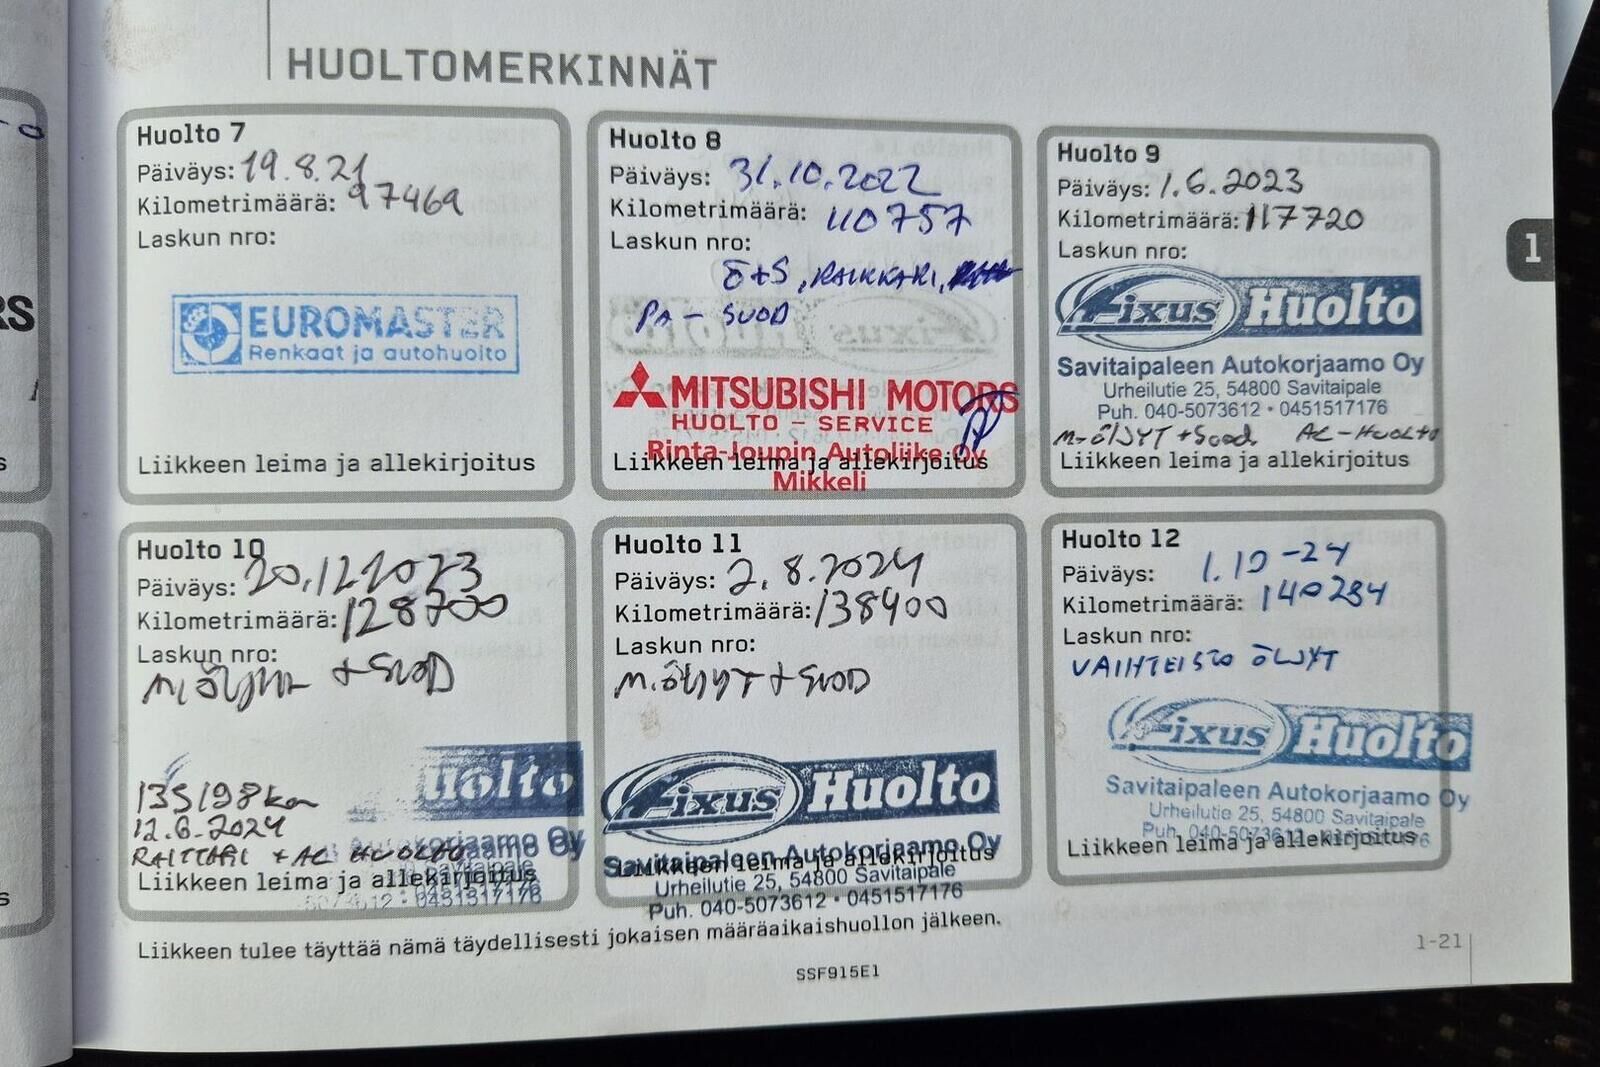 HUOLTOMERKINNÄT
Huolto 7
Päiväys: 19.8.21
Kilometrimäärä: 97469
Laskun nro:
EUROMASTER
Renkaat ja autohuolto
Liikkeen leima ja allekirjoitus
Huolto 8
Päiväys: 31.10.2022
Kilometrimäärä: 110757
Laskun nro:
Ö+S, RAIKKARI,
PA - SUOD
MITSUBISHI MOTORS
HUOLTO - SERVICE
Rinta-Joupin Autoliike Oy
Liikkeen leima ja allekirjoitus
Mikkeli
Huolto 9
Päiväys: 1.6.2023
Kilometrimäärä: 117720
Laskun nro:
Fixus Huolto
Savitaipaleen Autokorjaamo Oy
Urheilutie 25, 54800 Savitaipale
Puh. 040-5073612 • 0451517176
M-ÖLJYT + Suod. AC-HUOLTO
Liikkeen leima ja allekirjoitus
1
Huolto 10
Päiväys: 20.12.2023
Kilometrimäärä: 128700
Laskun nro:
+ SUOD
Huolto
135198 km
12.6.2024
RAITTARI + AC HUOLTO
Autokorjaamo Oy
Liikkeen leima ja allekirjoitus
Savitaipale
5073612 • 0451517176
Huolto 11
Päiväys: 2.8.2024
Kilometrimäärä: 138400
Laskun nro:
M.ÖLJYT + SUOD
Fixus Huolto
Savitaipaleen Autokorjaamo Oy
Liikkeen leima ja allekirjoitus
Urheilutie 25, 54800 Savitaipale
Puh. 040-5073612 • 0451517176
Huolto 12
Päiväys: 1.10-24
Kilometrimäärä: 140234
Laskun nro:
VAIHTEISTO ÖLJYT
Fixus Huolto
Savitaipaleen Autokorjaamo Oy
Urheilutie 25, 54800 Savitaipale
Puh. 040-5073612 • 0451517176
Liikkeen leima ja allekirjoitus
Liikkeen tulee täyttää nämä täydellisesti jokaisen määräaikaishuollon jälkeen.
1-21
SSF915E1